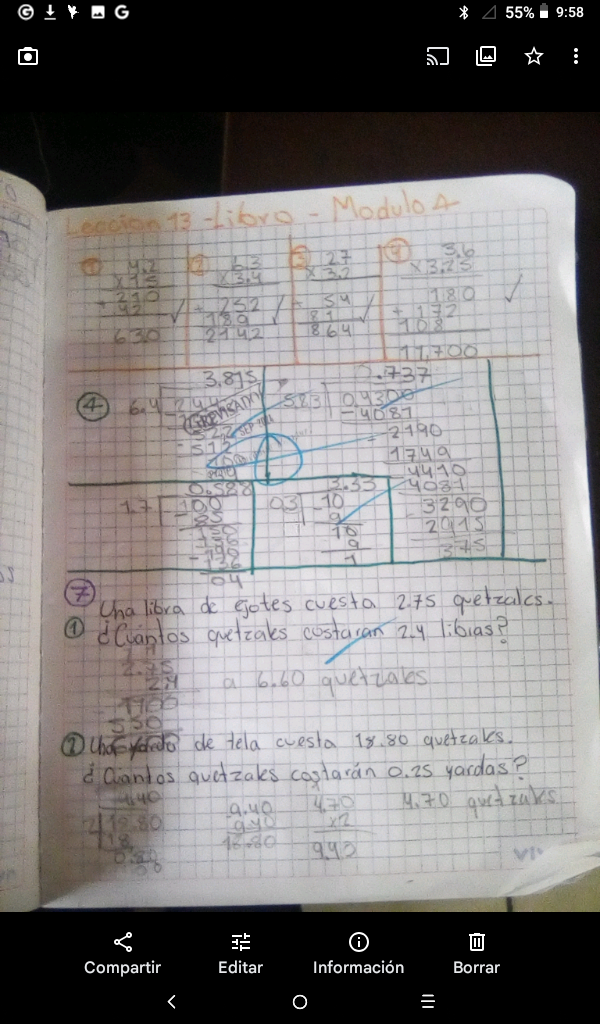 55% 9:58
Leccion 13 - Libro - Modulo A
① 4.2
x 15
+ 210
42
630
② 6.3
x 3.4
+ 252
189
2142
③ 27
x 3.2
+ 54
81
864
④ 3.6
x 3.25
180
+ 172
108
11,700
④ 3.815
6.4
0.737
5.83 0.4300
- 4081
2190
1749
4410
4081
3290
2915
375
0.588
1.7 100
- 136
04
3.33
0.3 10
9
10
9
1
⑦ Una libra de ejotes cuesta 2.75 quetzales.
① ¿Cuántos quetzales costaran 2.4 libras?
2.75
2.4
1100
550
a 6.60 quetzales
② Una yarda de tela cuesta 18.80 quetzales.
¿Cuantos quetzales costarán 0.25 yardas?
9.40
2 18.80
18
0.80
9.40
9.40
18.80
4.70
x2
9.40
4.70 quetzales
Compartir Editar Información Borrar